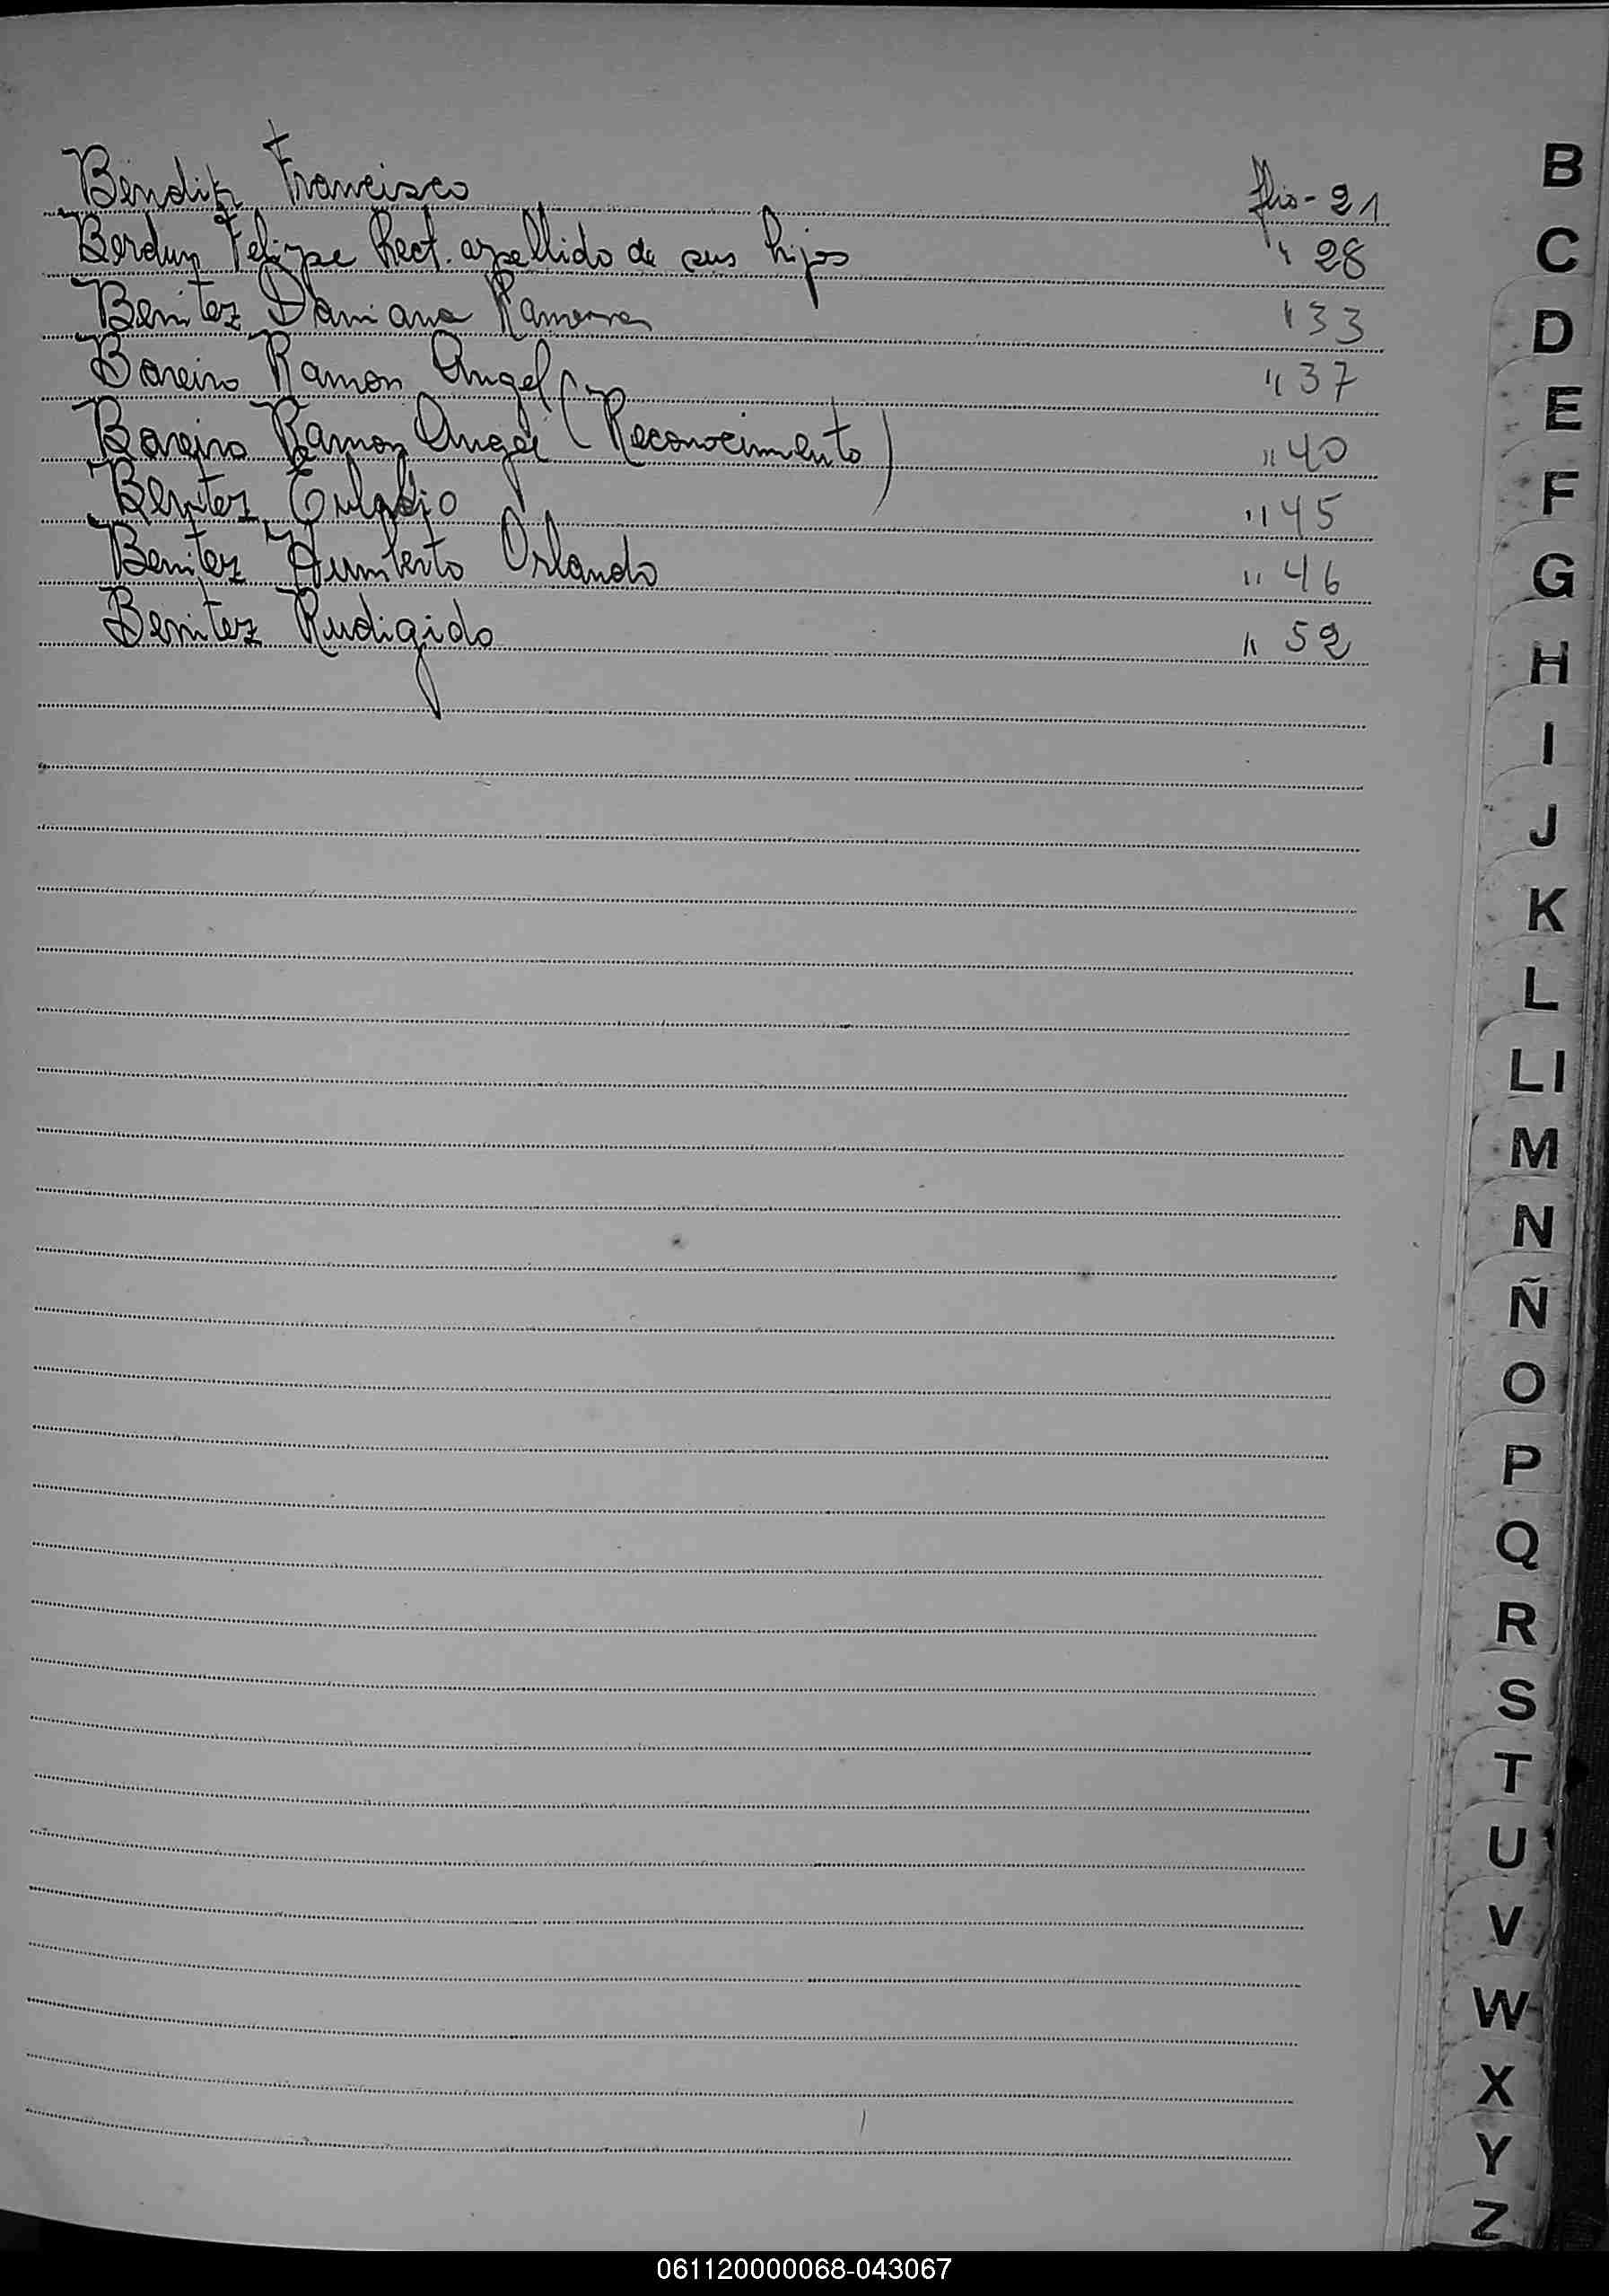 Benditz Francisco flio - 21
Berdun Felipe Rect. apellido de sus hijos " 28
Benitez Damiana Ramona " 33
Bareiro Ramon Angel " 37
Bareiro Ramon Angel (Reconocimento) " 40
Benitez Eulalio " 45
Benitez Humberto Orlando " 46
Benitez Rudigido " 52
B
C
D
E
F
G
H
I
J
K
L
Ll
M
N
Ñ
O
P
Q
R
S
T
U
V
W
X
Y
Z
061120000068-043067